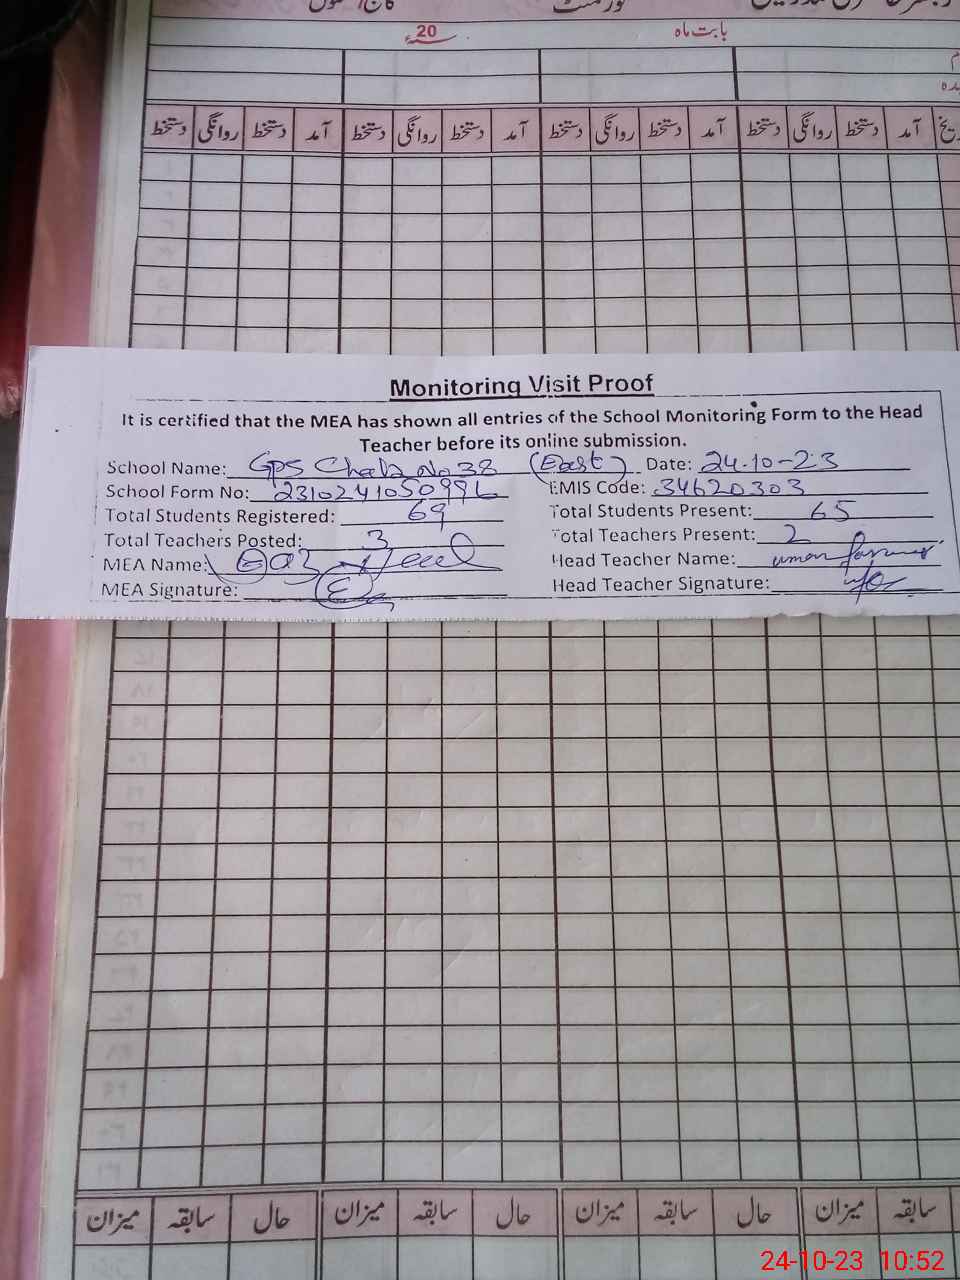 بابت ماہ 20ء
دستخط روانگی دستخط آمد دستخط روانگی دستخط آمد دستخط روانگی دستخط آمد دستخط روانگی دستخط آمد
Monitoring Visit Proof
It is certified that the MEA has shown all entries of the School Monitoring Form to the Head
Teacher before its online submission.
School Name: GPS Chak No 38 (East) Date: 24-10-23
School Form No: EMIS Code: 34620303
Total Students Registered: 69 Total Students Present: 65
Total Teachers Posted: 3 Total Teachers Present: 2
MEA Name: Head Teacher Name:
MEA Signature: Head Teacher Signature:
میزان سابقہ حال میزان سابقہ حال میزان سابقہ حال میزان سابقہ
24-10-23 10:52